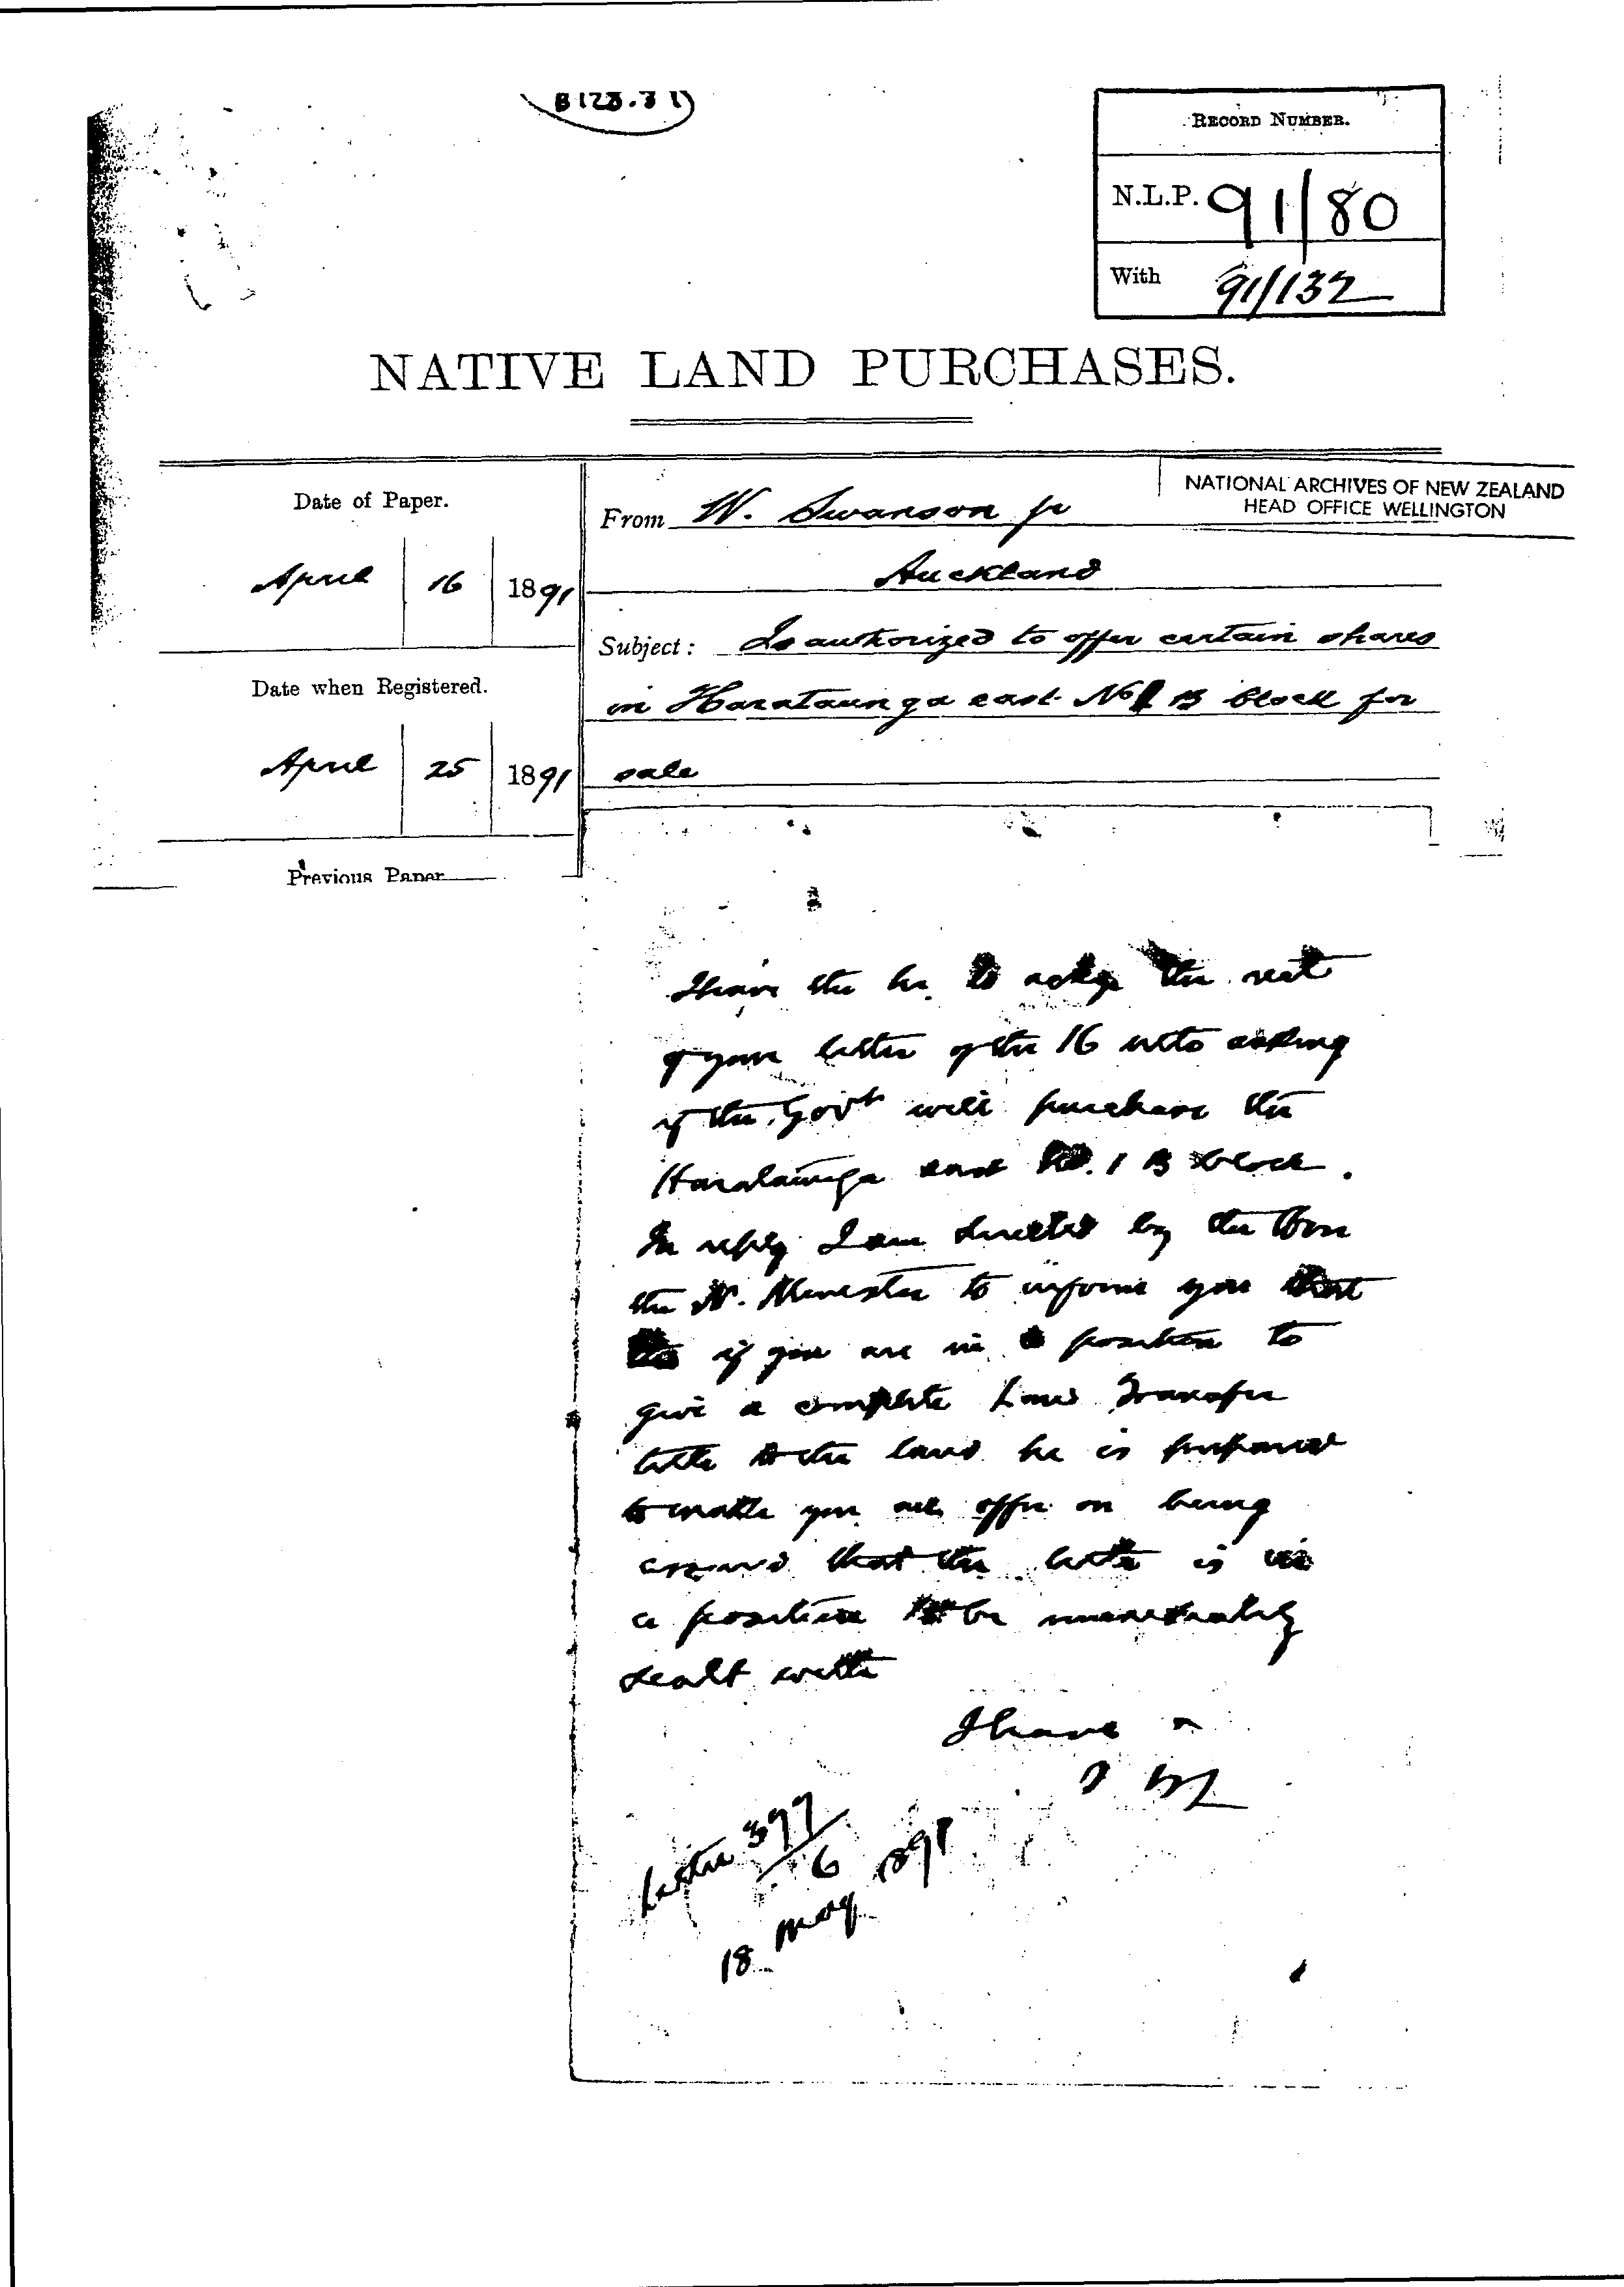 B 123.31
RECORD NUMBER.
N.L.P. 91/80
With 91/132
NATIVE LAND PURCHASES.
NATIONAL ARCHIVES OF NEW ZEALAND
HEAD OFFICE WELLINGTON
Date of Paper.
April 16 1891
Date when Registered.
April 25 1891
Previous Paper
From W. Swanson jr
Auckland
Subject: Is authorized to offer certain shares
in Harataunga east No 1 B block for
sale
I have the to the
of your letter of the 16 asking
if the Govt will purchase the
Harataunga east No. 1 B block.
In reply I am directed by the Hon
the N. Minister to inform you that
if you are in a position to
give a complete Land Transfer
title to the land he is prepared
to make you offer on being
assured that the title is in
a position to be immediately
dealt with
I have
Letter 377/6
18 May 1891